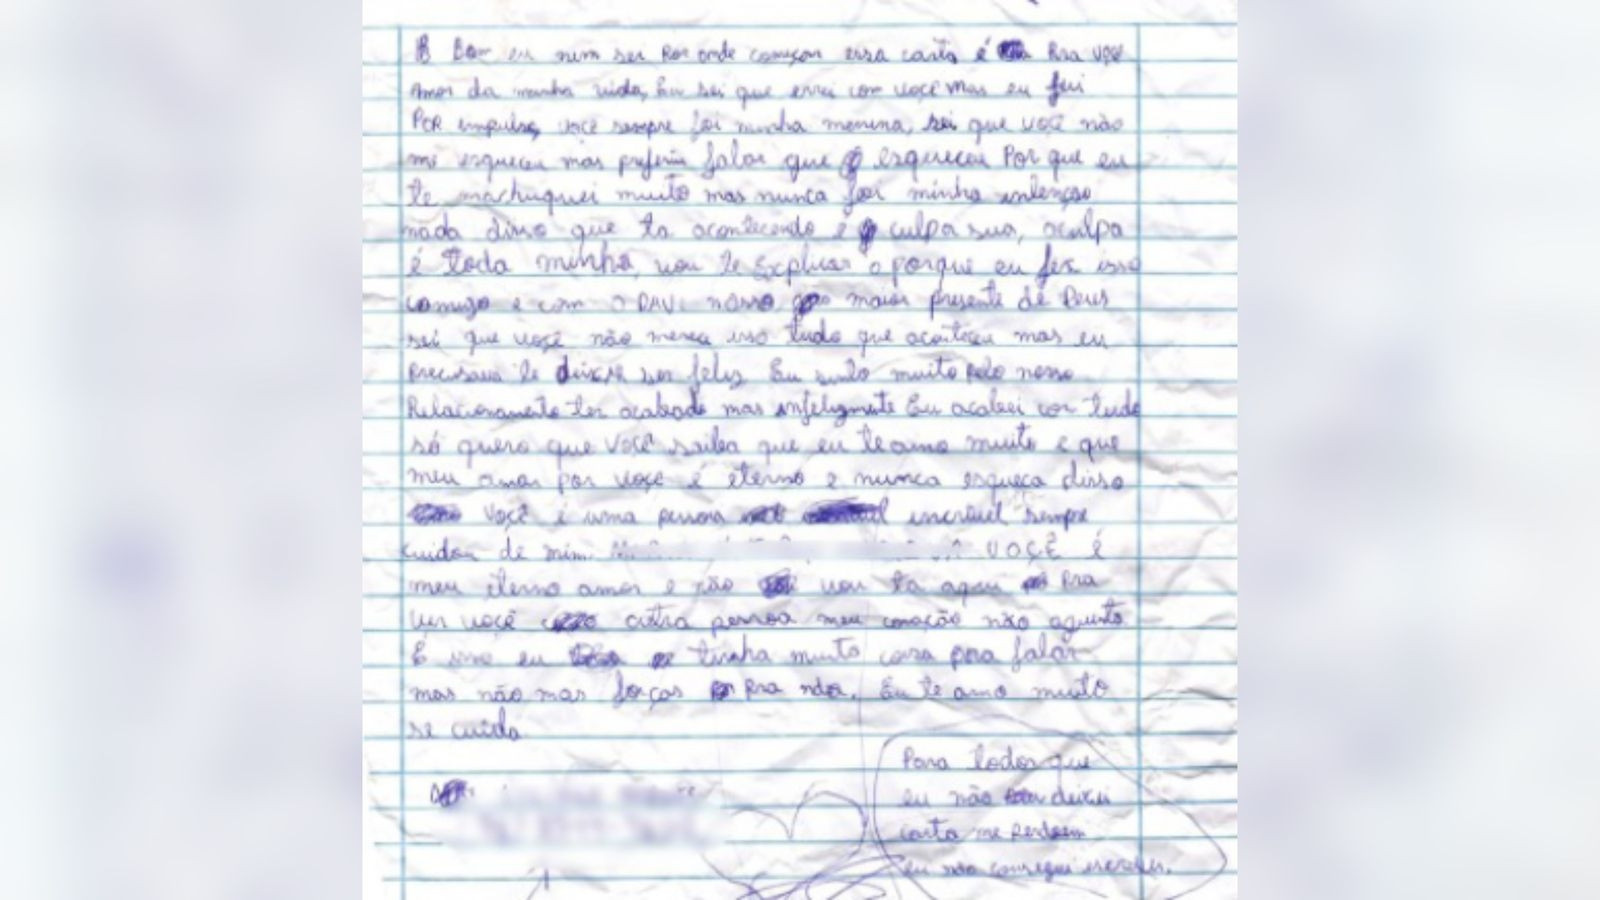 Bom eu nem sei por onde começar essa carta é pra você
Amor da minha vida, Eu sei que errei com você mas eu fui
POR impulso, você sempre foi minha menina, sei que você não
me esqueceu mas preferiu falar que esqueceu Por que eu
te machuquei muito mas nunca foi minha intenção
nada disso que ta acontecendo é culpa sua, aculpa
é toda minha, vou te Explicar o porque eu fez isso
comigo e com O DAVI nosso maior presente de Deus
sei que você não mereça isso tudo que aconteceu mas eu
precisava te deixar ser feliz Eu sinto muito pelo nosso
Relacionamento ter acabado mas infelizmente Eu acabei cor tudo
só quero que você saiba que eu te amo muito e que
meu amor por você é eterno e nunca esqueça disso
Você é uma pessoa incrível sempre
cuidou de mim. VOÇÊ é
meu eterno amor e não vou ta aqui pra
ver você outra pessoa meu coração não aguenta
É isso eu tinha muito coisa pora falar
mas não mas forças pra nda. Eu te amo muito
se cuida
Para todos que
eu não deixei
carta me perdoem
eu não consegui escrever.